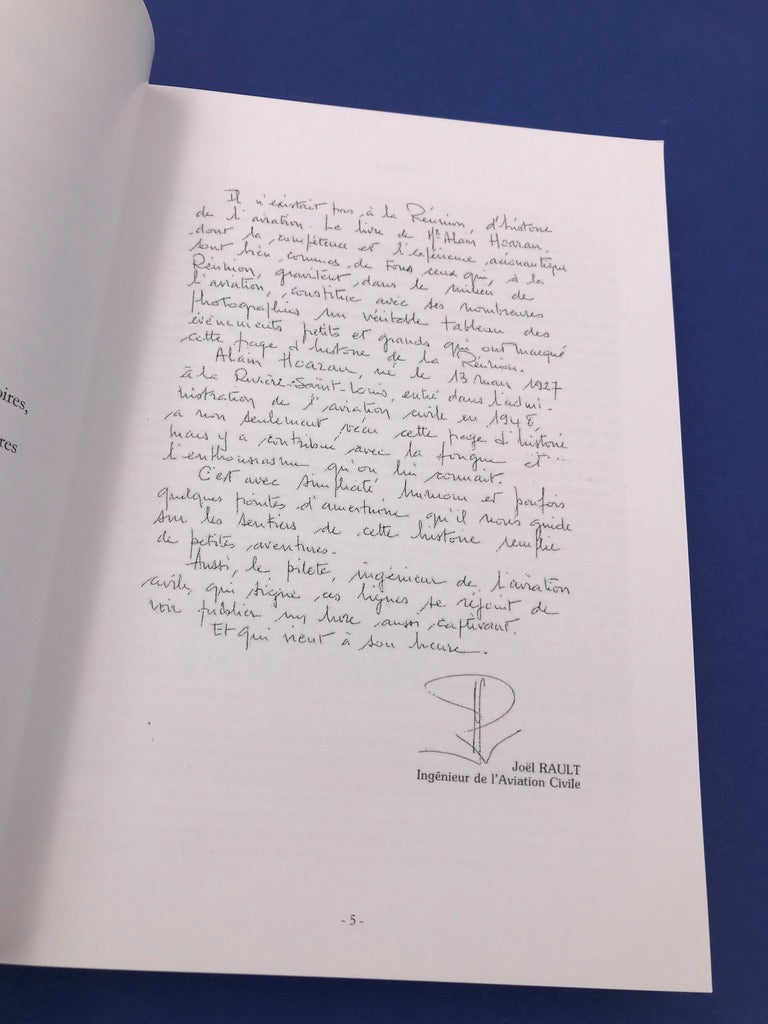 Il n'existait pas, à la Réunion, d'histoire
de l'aviation. Le livre de Mr Alain Hoarau,
dont la compétence et l'expérience aéronautique
sont bien connues de tous ceux qui, à la
Réunion, gravitent dans le milieu de
l'aviation, constitue avec ses nombreuses
photographies un véritable tableau des
évènements petits et grands qui ont marqué
cette page d'histoire de la Réunion.
Alain Hoarau, né le 13 mars 1927
à la Rivière-Saint-Louis, entré dans l'admi-
nistration de l'aviation civile en 1948,
a non seulement vécu cette page d'histoire
mais y a contribué avec la fougue et
l'enthousiasme qu'on lui connait.
C'est avec simplicité, humour et parfois
quelques pointes d'amertume qu'il nous guide
sur les sentiers de cette histoire remplie
de petites aventures.
Aussi, le pilote, ingénieur de l'aviation
civile, qui signe ces lignes se réjouit de
voir publier un livre aussi captivant.
Et qui vient à son heure.
Joël RAULT
Ingénieur de l'Aviation Civile
- 5 -
oires,
res